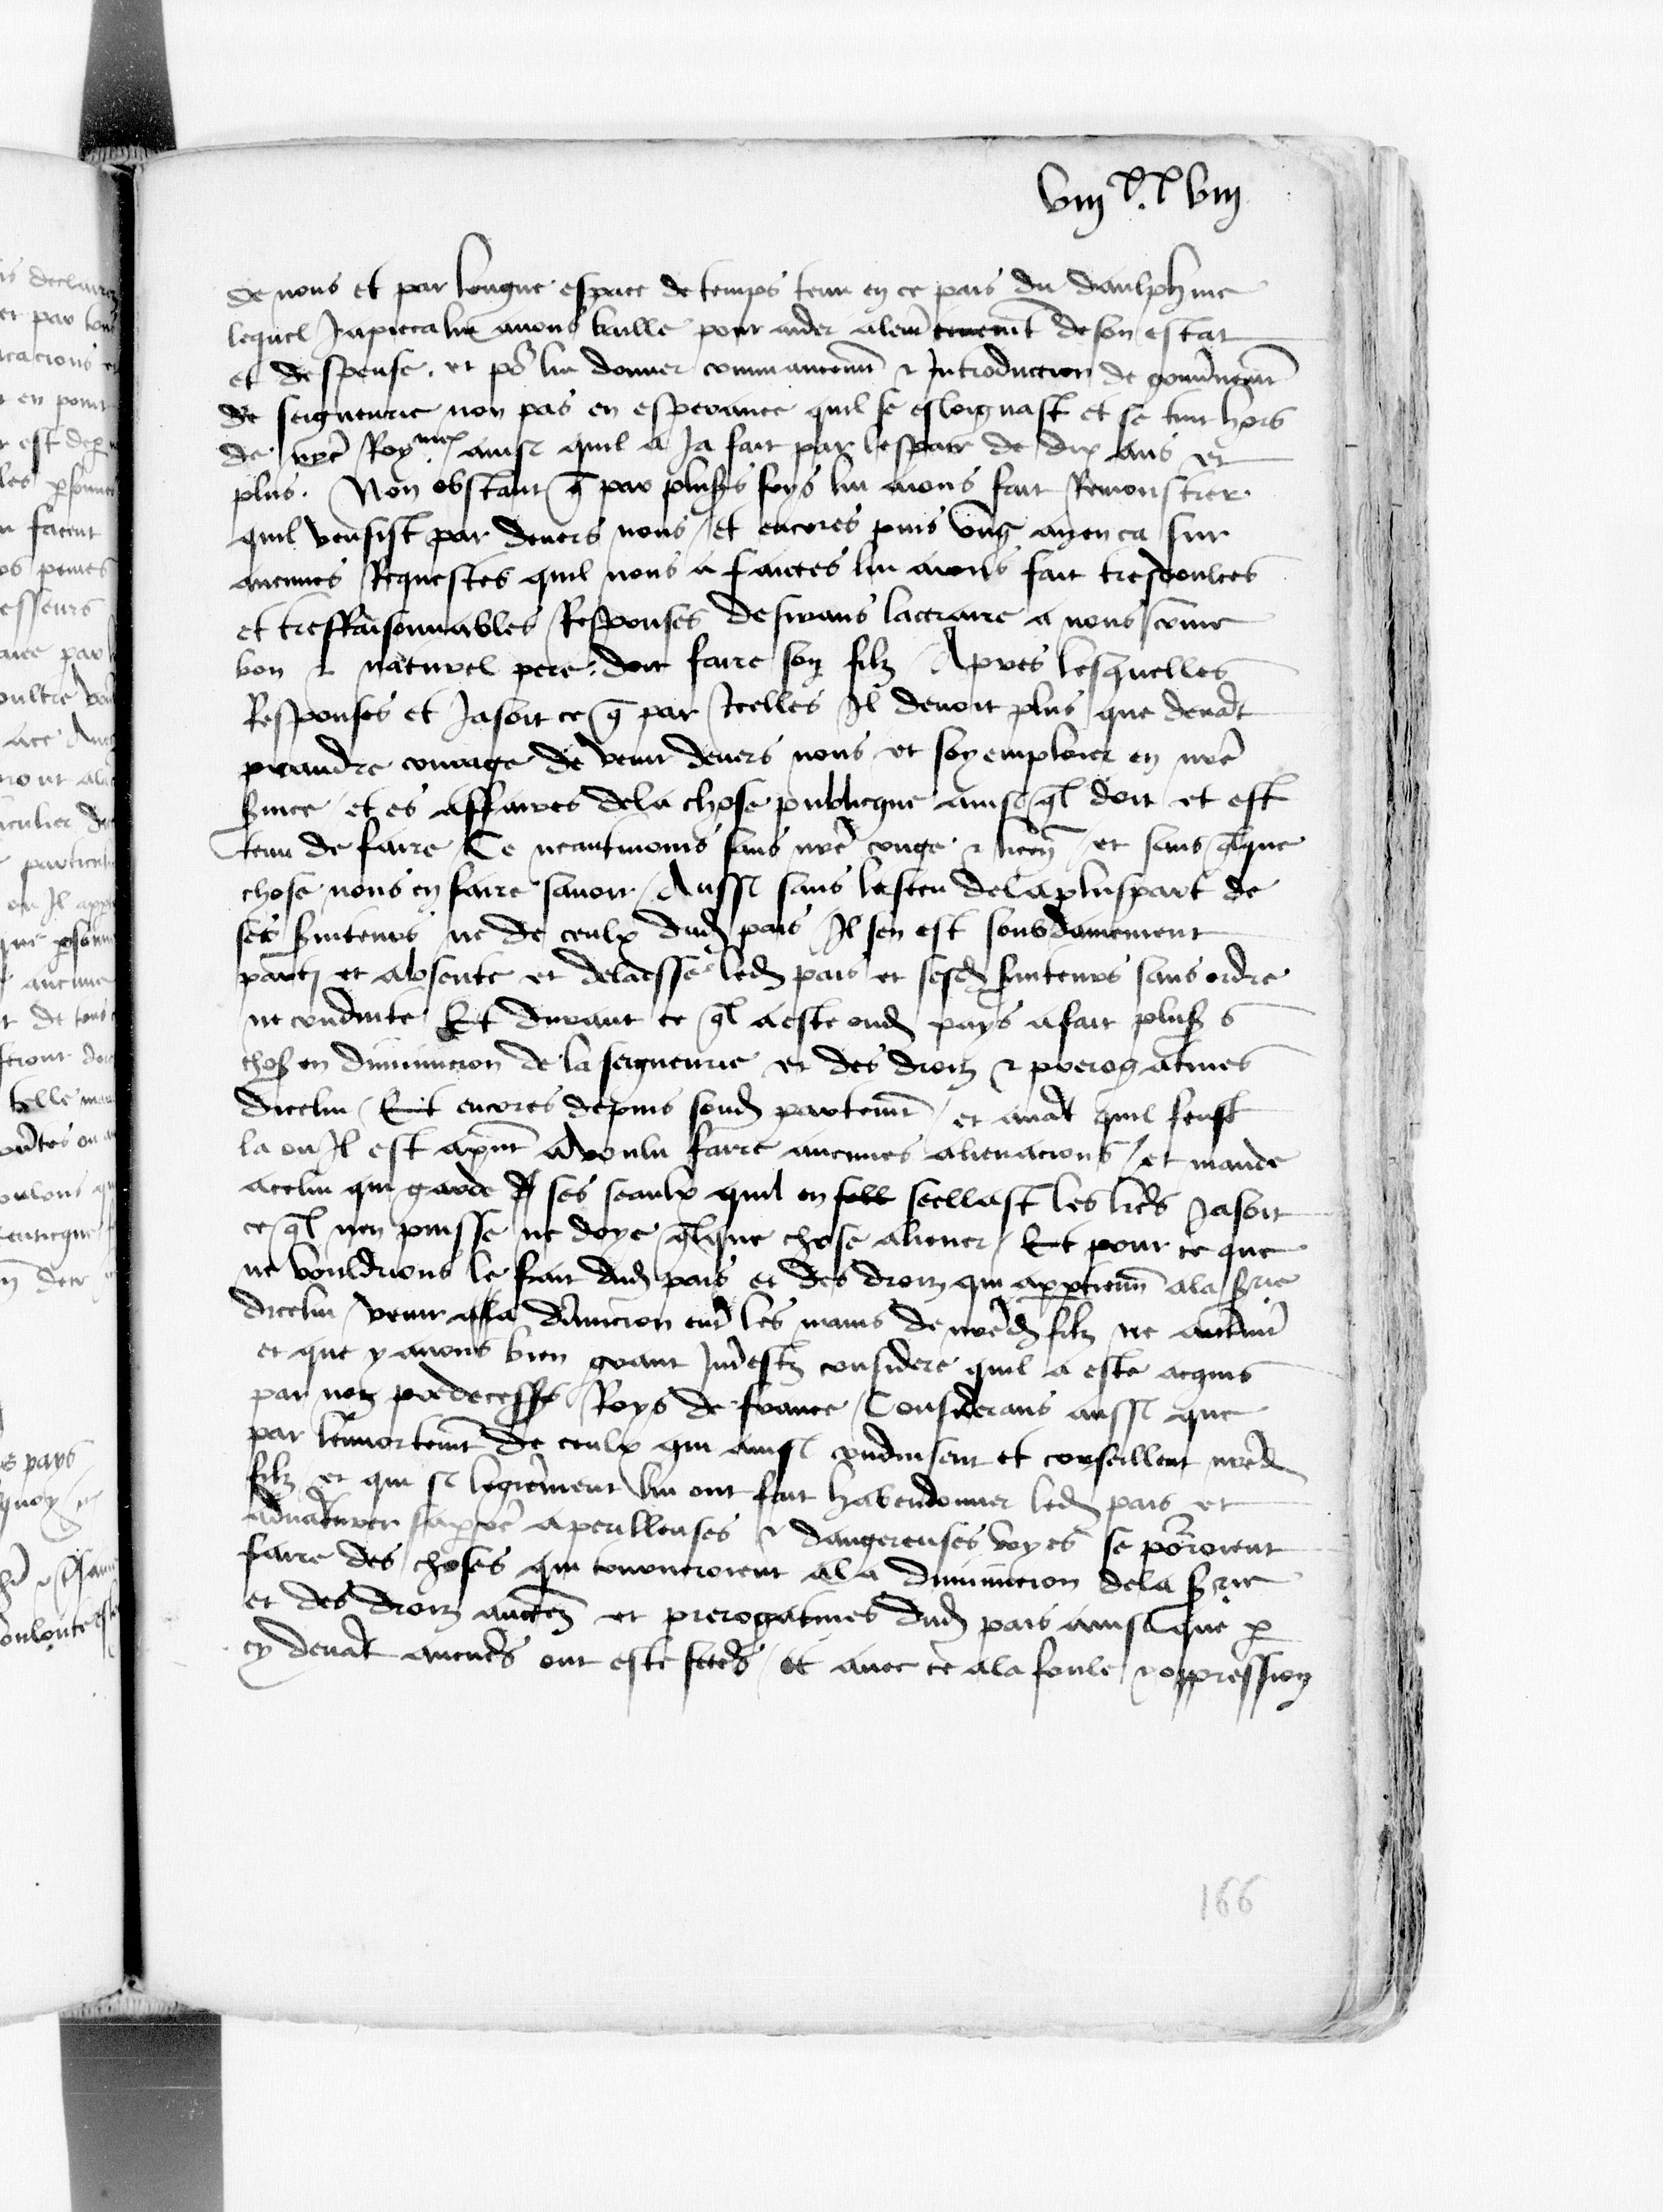 viij xx. viij
de nous et par longue espace de temps tenu en ce pais du daulphine
lequel Japieca lui auons baille pour aider a lentretenemt de son estat
et despense. et po' lui donner commancemt & Introduction de gouu'nemt
de seigneurie non pas en esperance quil se esloignast et se tint hors
de nre Royme ainsi quil a Ja fait par lespace de dix ans et
plus. Non obstant q par plus's foys lui auons fait Remonstrer
quil vensist par deuers nous / et encores puis vng an en ca sur
aucunes Requestes quil nous a faictes lui auons fait tresdoulces
et tresRaisonnables Responses desirans lactraire a nous come
bon & naturel pere doit faire son filz / Apres lesquelles
Responses et Jasoit ce q par Icelles Il deuoit plus que deuat
prandre courage de venir deuers nous et soy emploier en nre
s'uice / et es affaires de la chose publicque ainsi ql doit et est
tenu de faire / Ce neantmoins sans nre conge & licen / et sans qlque
chose nous en faire sauoir / Aussi sans le sceu de la pluspart de
ses s'uiteurs ne de ceulx dud pais / Il sen est soubdainement
parti et absente et delaisse led pais et sesd s'uiteurs sans ordre
ne conduite / Et durant ce ql a este oud pays a fait plus's
chos' en diminucion de la seigneurie et des droiz & prerogatiues
dicelui / Et encores depuis soud partemt / et auat quil feust
la ou Il est a pnt a voulu faire aucunes alienacions / et mande
a celui qui garde ses seaulx quil en seellast les lres Jasoit
ce ql nen puisse ne doye qlque chose aliener / Et pour ce que
ne vouldrions le fait dud pais et des droiz qui apptienn a la s'rie
dicelui / venir a la diminucion entre les mains de nred filz ne autremt
et que y auons bien grant Interestz considere quil a este acquis
par noz predecess's Roys de france / Considerans aussi que
par lennortemt de ceulx qui ainsi conduisent et conseillent nred
filz / et qui si legierement lui ont fait habendonner led pais et
aduaturer sa psone a perilleuses & dangereuses voyes se porroient
faire des choses qui tourneroient a la diminucion de la s'rie
et des droiz aucten et prerogatiues dud pais ainsi que p
cy deuat aucunes ont este fctes / et auec ce a la foule & oppression
166